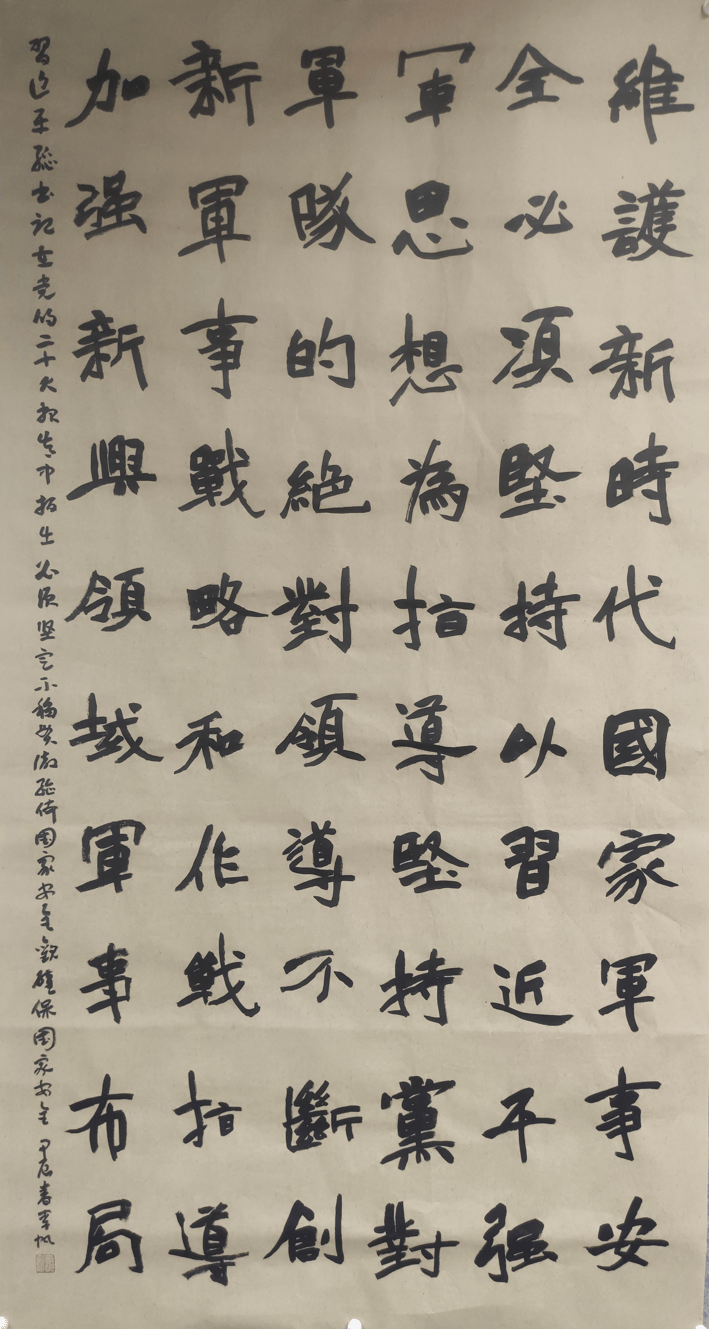 維護新時代國家軍事安
全必湏堅持以習近平强
軍思想為指導堅持黨對
軍隊的絕對領導不斷創
新軍事戰略和作戰指導
加强新興領域軍事布局
習近平總书记在党的二十大报告中指出必须坚定不移贯彻總体国家安全觀確保国家安全 甲辰春